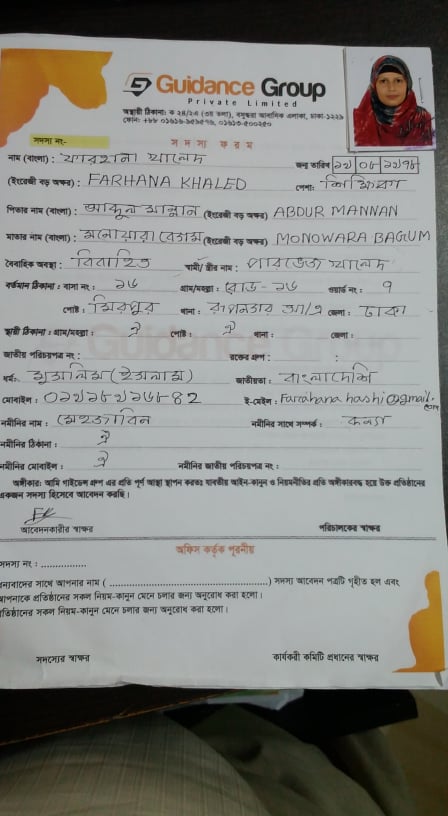 Guidance Group
Private Limited
অস্থায়ী ঠিকানা: ক ২৪/২এ (৩য় তলা), বসুন্ধরা আবাসিক এলাকা, ঢাকা-১২২৯
সদস্য নং-
সদস্য ফরম
নাম (বাংলা): ফারহানা খালেদ জন্ম তারিখ
(ইংরেজী বড় অক্ষর): FARHANA KHALED পেশা: শিক্ষিকা
পিতার নাম (বাংলা): আব্দুল মান্নান (ইংরেজী বড় অক্ষর) ABDUR MANNAN
মাতার নাম (বাংলা): মনোয়ারা বেগম (ইংরেজী বড় অক্ষর) MONOWARA BAGUM
বৈবাহিক অবস্থা: বিবাহিত স্বামী/স্ত্রীর নাম: পারভেজ খালেদ
বর্তমান ঠিকানা: বাসা নং: ১৬ গ্রাম/মহল্লা: রোড-১৬ ওয়ার্ড নং: ৭
পোষ্ট: মিরপুর থানা: রূপনগর আ/এ জেলা: ঢাকা
স্থায়ী ঠিকানা: গ্রাম/মহল্লা: ঐ পোষ্ট: ঐ থানা: জেলা:
জাতীয় পরিচয়পত্র নং: রক্তের গ্রুপ: :
ধর্ম: মুসলিম (ইসলাম) জাতীয়তা: বাংলাদেশি
মোবাইল: ই-মেইল: Farahana hashi@gmail.com
নমীনির নাম: মেহজাবিন নমীনির সাথে সম্পর্ক: কন্যা
নমীনির ঠিকানা: ঐ
নমীনির মোবাইল: ঐ নমীনির জাতীয় পরিচয়পত্র নং:
অঙ্গীকার: আমি গাইডেন্স গ্রুপ এর প্রতি পূর্ণ আস্থা স্থাপন করতঃ যাবতীয় আইন-কানুন ও নিয়মনীতির প্রতি অঙ্গীকারবদ্ধ হয়ে উক্ত প্রতিষ্ঠানের
একজন সদস্য হিসেবে আবেদন করছি।
আবেদনকারীর স্বাক্ষর পরিচালকের স্বাক্ষর
অফিস কর্তৃক পূরনীয়
সদস্য নং: ................
ন্যবাদের সাথে আপনার নাম (..............................................) সদস্য আবেদন পত্রটি গৃহীত হল এবং
আপনাকে প্রতিষ্ঠানের সকল নিয়ম-কানুন মেনে চলার জন্য অনুরোধ করা হলো।
প্রতিষ্ঠানের সকল নিয়ম-কানুন মেনে চলার জন্য অনুরোধ করা হলো।
সদস্যের স্বাক্ষর কার্যকরী কমিটি প্রধানের স্বাক্ষর